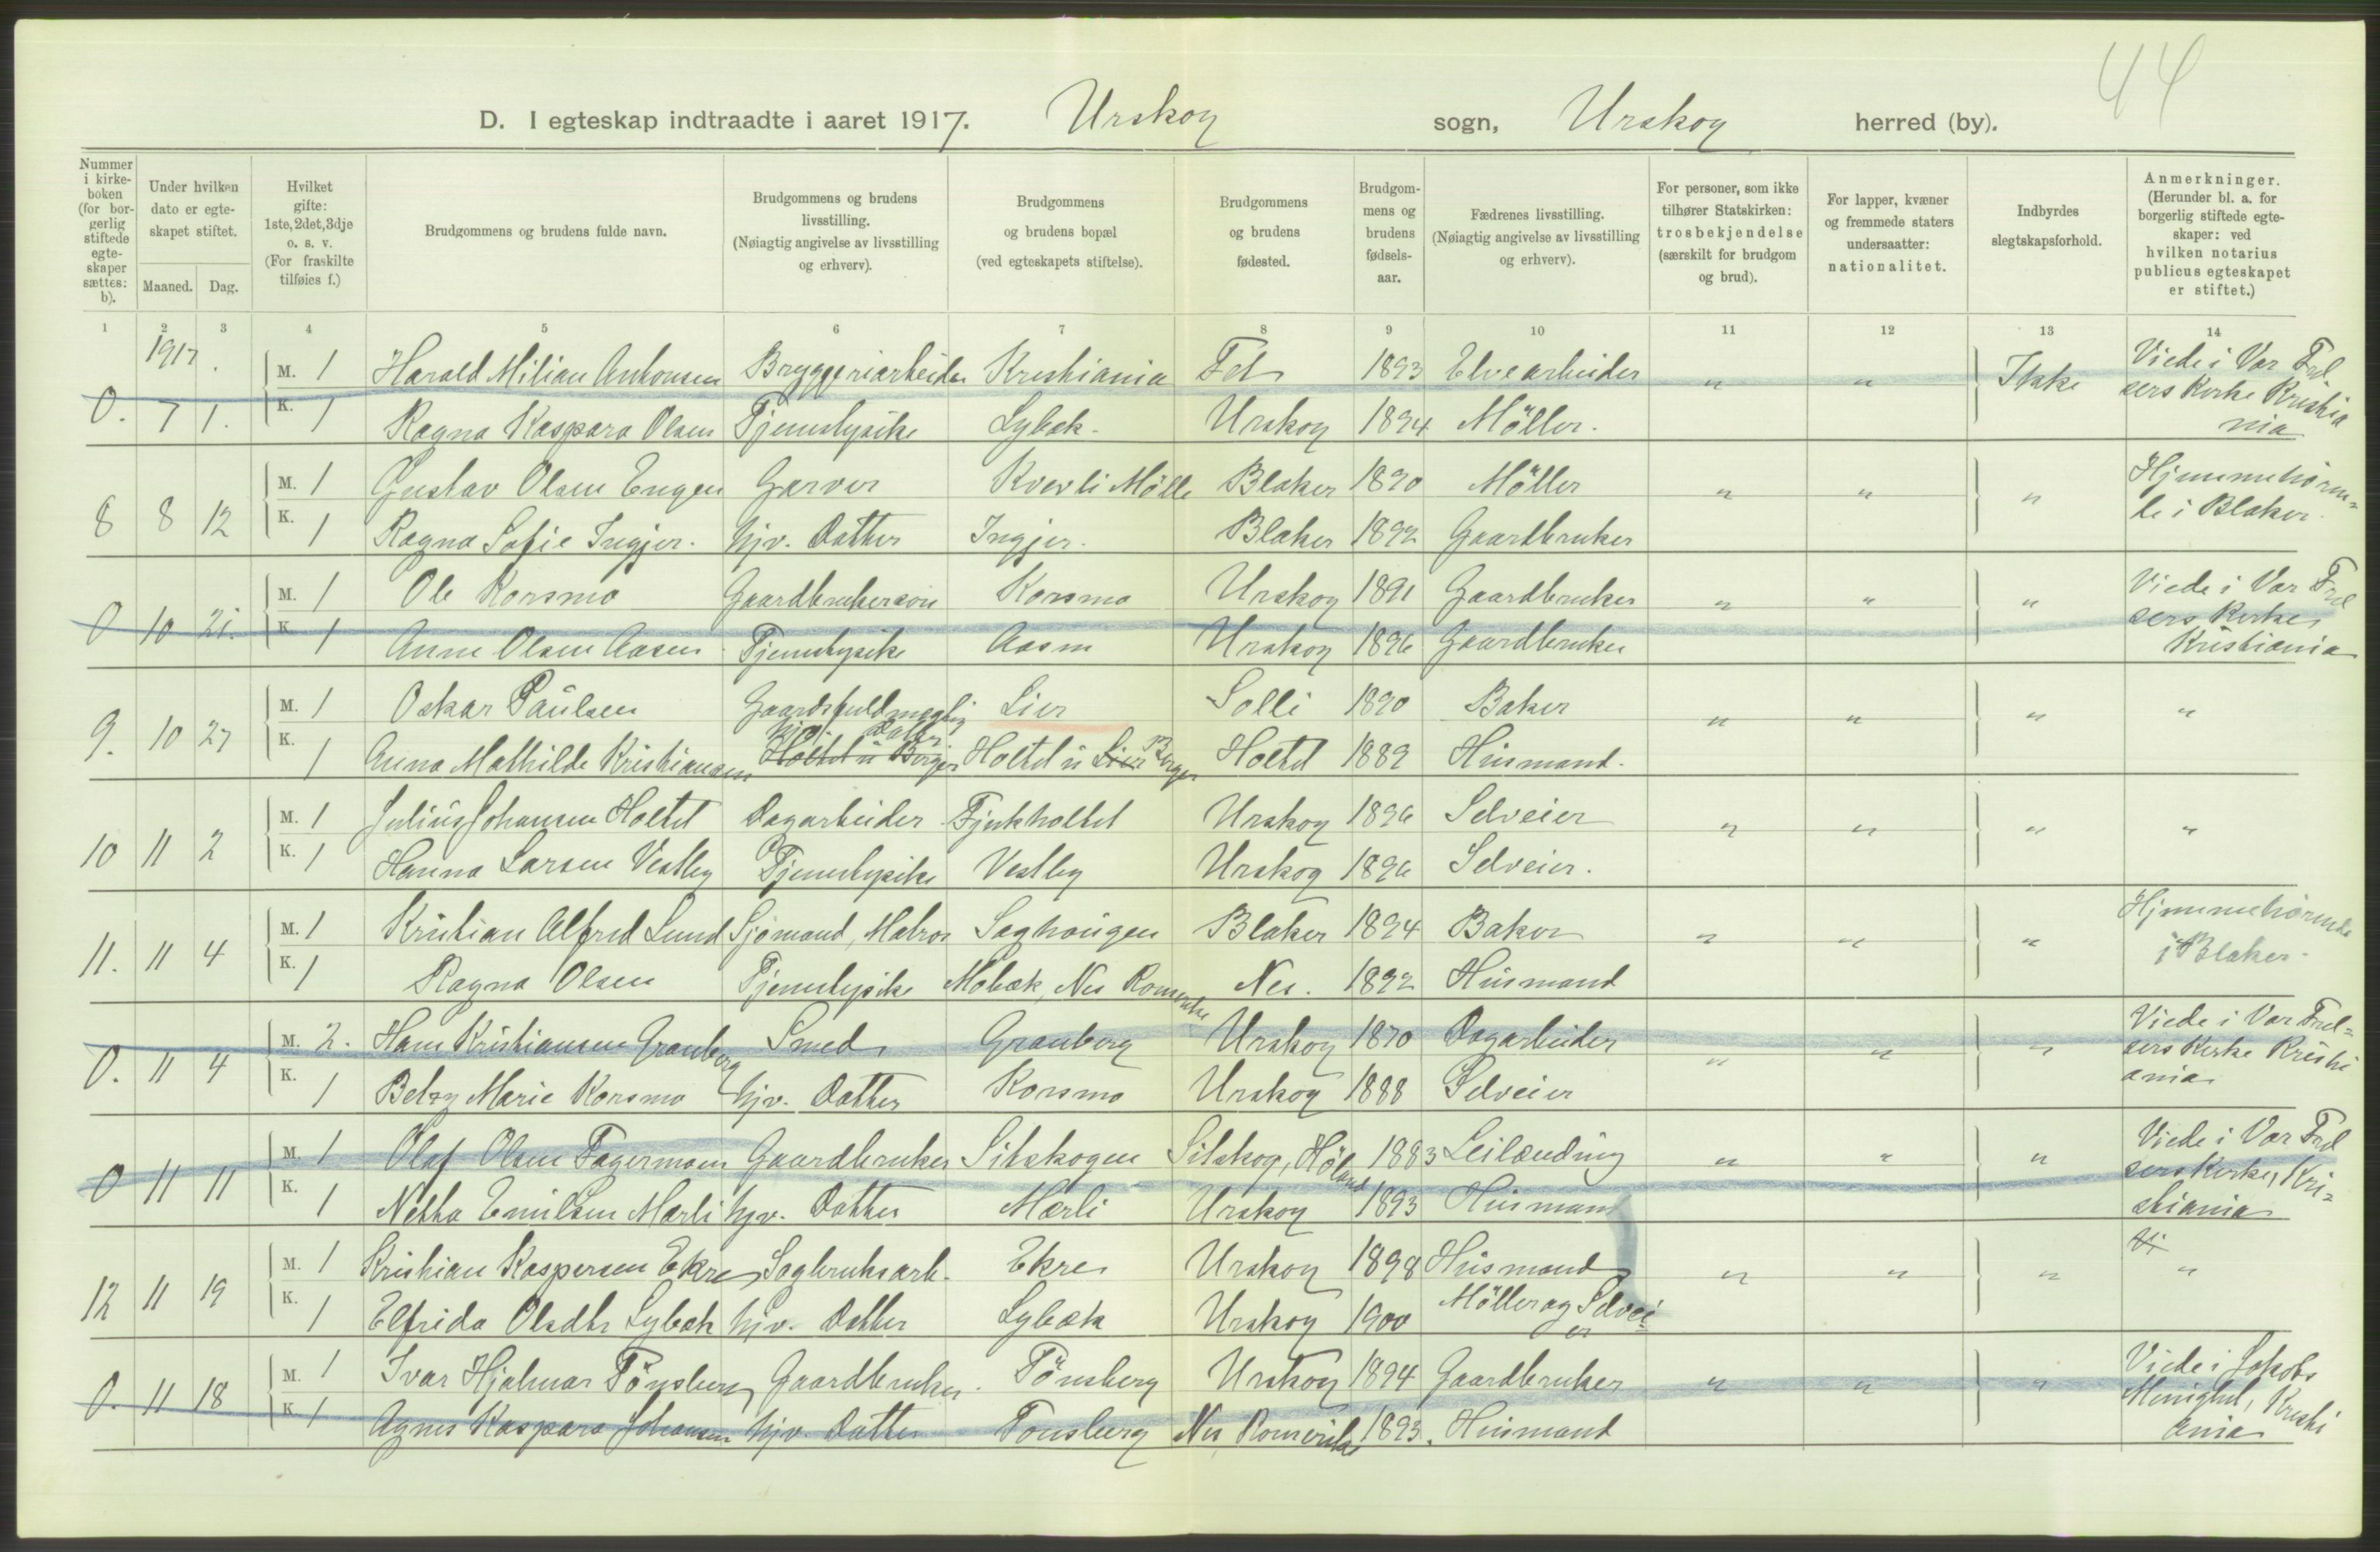 44
D. I egteskap indtraadte i aaret 1917. Urskog sogn, Urskog herred (by).
Nummer i kirke-boken (for bor-gerlig stiftede egte-skaper sættes: b).
Under hvilken dato er egte-skapet stiftet.
Maaned. Dag.
Hvilket gifte: 1ste, 2det, 3dje o. s. v. (For fraskilte tilføies f.)
Brudgommens og brudens fulde navn.
Brudgommens og brudens livsstilling. (Nøiagtig angivelse av livsstilling og erhverv).
Brudgommens og brudens bopæl (ved egteskapets stiftelse).
Brudgommens og brudens fødested.
Brudgom-mens og brudens fødsels-aar.
Fædrenes livsstilling. (Nøiagtig angivelse av livsstilling og erhverv).
For personer, som ikke tilhører Statskirken: trosbekjendelse (særskilt for brudgom og brud).
For lapper, kvæner og fremmede staters undersaatter: nationalitet.
Indbyrdes slegtskapsforhold.
Anmerkninger. (Herunder bl. a. for borgerlig stiftede egte-skaper: ved hvilken notarius publicus egteskapet er stiftet.)
1 2 3 4 5 6 7 8 9 10 11 12 13 14
1917.
M. 1 Harald Milian Antonsen Bryggeriarbeider Kristiania Fet 1893 Elvearbeider " " Ikke Viede i Vor Frel
sers Kirke Kristia
nia
0. 7 1. K. 1 Ragna Kaspara Olsen Tjenestepike Lybæk. Urskog 1894 Möller.
M. 1 Gustav Olsen Engen Garver Kverli Mölle Blaker 1890 Möller " " " Hjemmehören=
de i Blaker.
8 8 12 K. 1 Ragna Sofie Ingjer. hjv. Datter Ingjer. Blaker 1892 Gaardbruker
M. 1 Ole Korsmo Gaardbrukersön Korsmo Urskog 1891 Gaardbruker " " " Viede i Vor Frel
sers Kirke,
Kristiania
0 10 21. K. 1 Anne Olsen Aasen Tjenestepike Aasen Urskog 1896 Gaardbruker
M. 1 Oskar Paulsen Gaardsfuldmægtig Lier Solli 1890 Baker " " " "
hjv. Datter
9. 10 27 K. 1 Anna Mathilde Kristiansen Holtet u Berger Holtet u Lier Berger Holtet 1889 Husmand.
M. 1 Julius Johansen Holtet Dagarbeider Tjukholtet Urskog 1896 Selveier " " " "
10 11 2 K. 1 Hanna Larsen Vestby Tjenestepike Vestby Urskog 1896 Selveier.
M. 1 Kristian Alfred Lund Sjömand, Matros Saghaugen Blaker 1894 Baker " " " Hjemmehörende
i Blaker.
11. 11 4 K. 1 Ragna Olsen Tjenestepike Mobæk, Nes Romerike Nes. 1892 Husmand
M. 2. Hans Kristiansen Granberg Smed Granberg Urskog 1870 Dagarbeider " " " Viede i Vor Frel=
sers Kirke Kristi
ania
0. 11 4 K. 1 Betzy Marie Korsmo hjv. Datter Korsmo Urskog 1888 Selveier
M. 1 Olaf Olsen Fagermoen Gaardbruker Sitskogen Sitskog, Höland 1883 Leilænding " " " Viede i Vor Frel
sers Kirke, Kri=
stiania
0 11 11 K. 1 Netta Emilsen Mærli hjv. Datter Mærli Urskog 1893 Husmand
M. 1 Kristian Kaspersen Ekre Sagbruksarb. Ekre Urskog 1898 Husmand " " " Vi "
12 11 19 K. 1 Elfrida Olsdtr Lybæk hjv. Datter Lybæk Urskog 1900 Möller og Selvei=
er
M. 1 Ivar Hjalmar Tönsberg Gaardbruker. Tönsberg Urskog 1894 Gaardbruker " " " Viede i Jakobs
Menighet, Kristi
ania
0. 11 18 K. 1 Agnes Kaspara Johansen hjv. Datter Tönsberg Nes Romerike 1893. Husmand